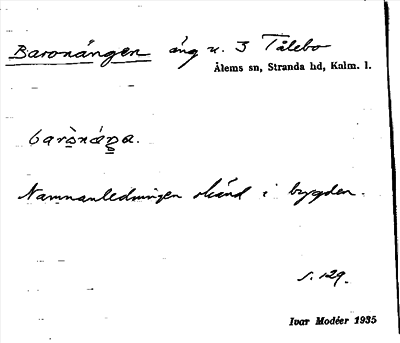 Baronängen äng u. 3 Tålebo
Ålems sn, Stranda hd, Kalm. l.
baronäŋa.
Namnanledningen okänd i bygden.
s. 129.
Ivar Modéer 1935